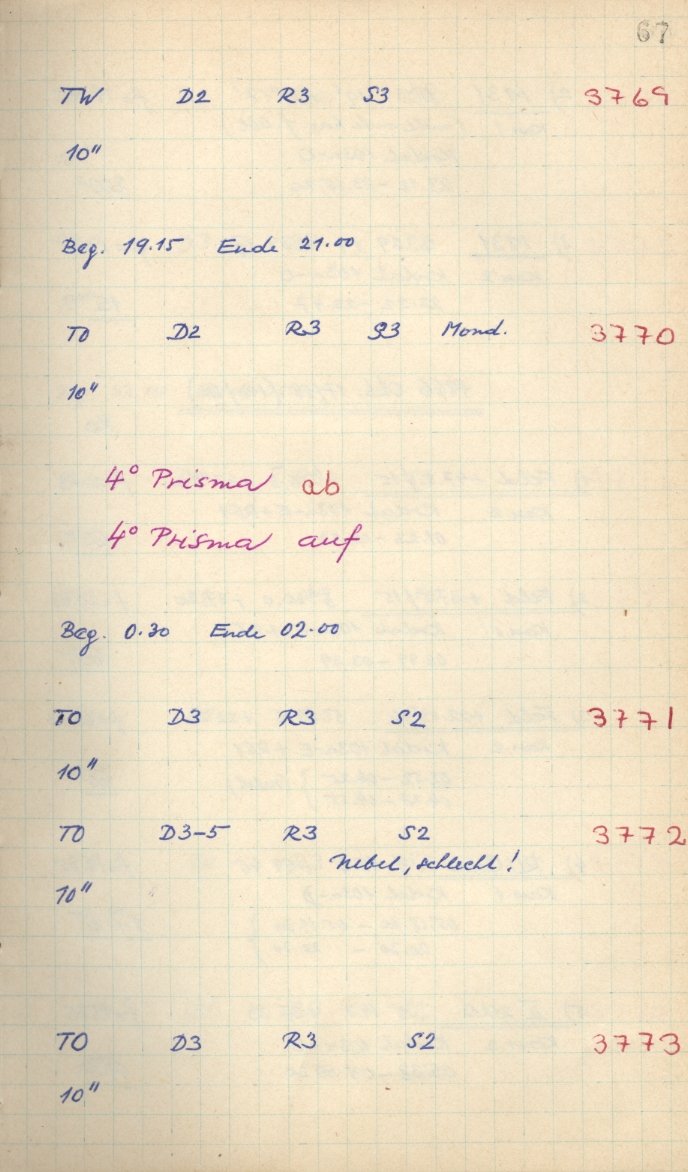 67
TW D2 R3 S3 3769
10"
Beg. 19.15 Ende 21.00
TO D2 R3 S3 Mond. 3770
10"
4° Prisma ab
4° Prisma auf
Beg. 0.30 Ende 02.00
TO D3 R3 S2 3771
10"
TO D3-5 R3 S2 3772
Nebel, schlecht!
10"
TO D3 R3 S2 3773
10"